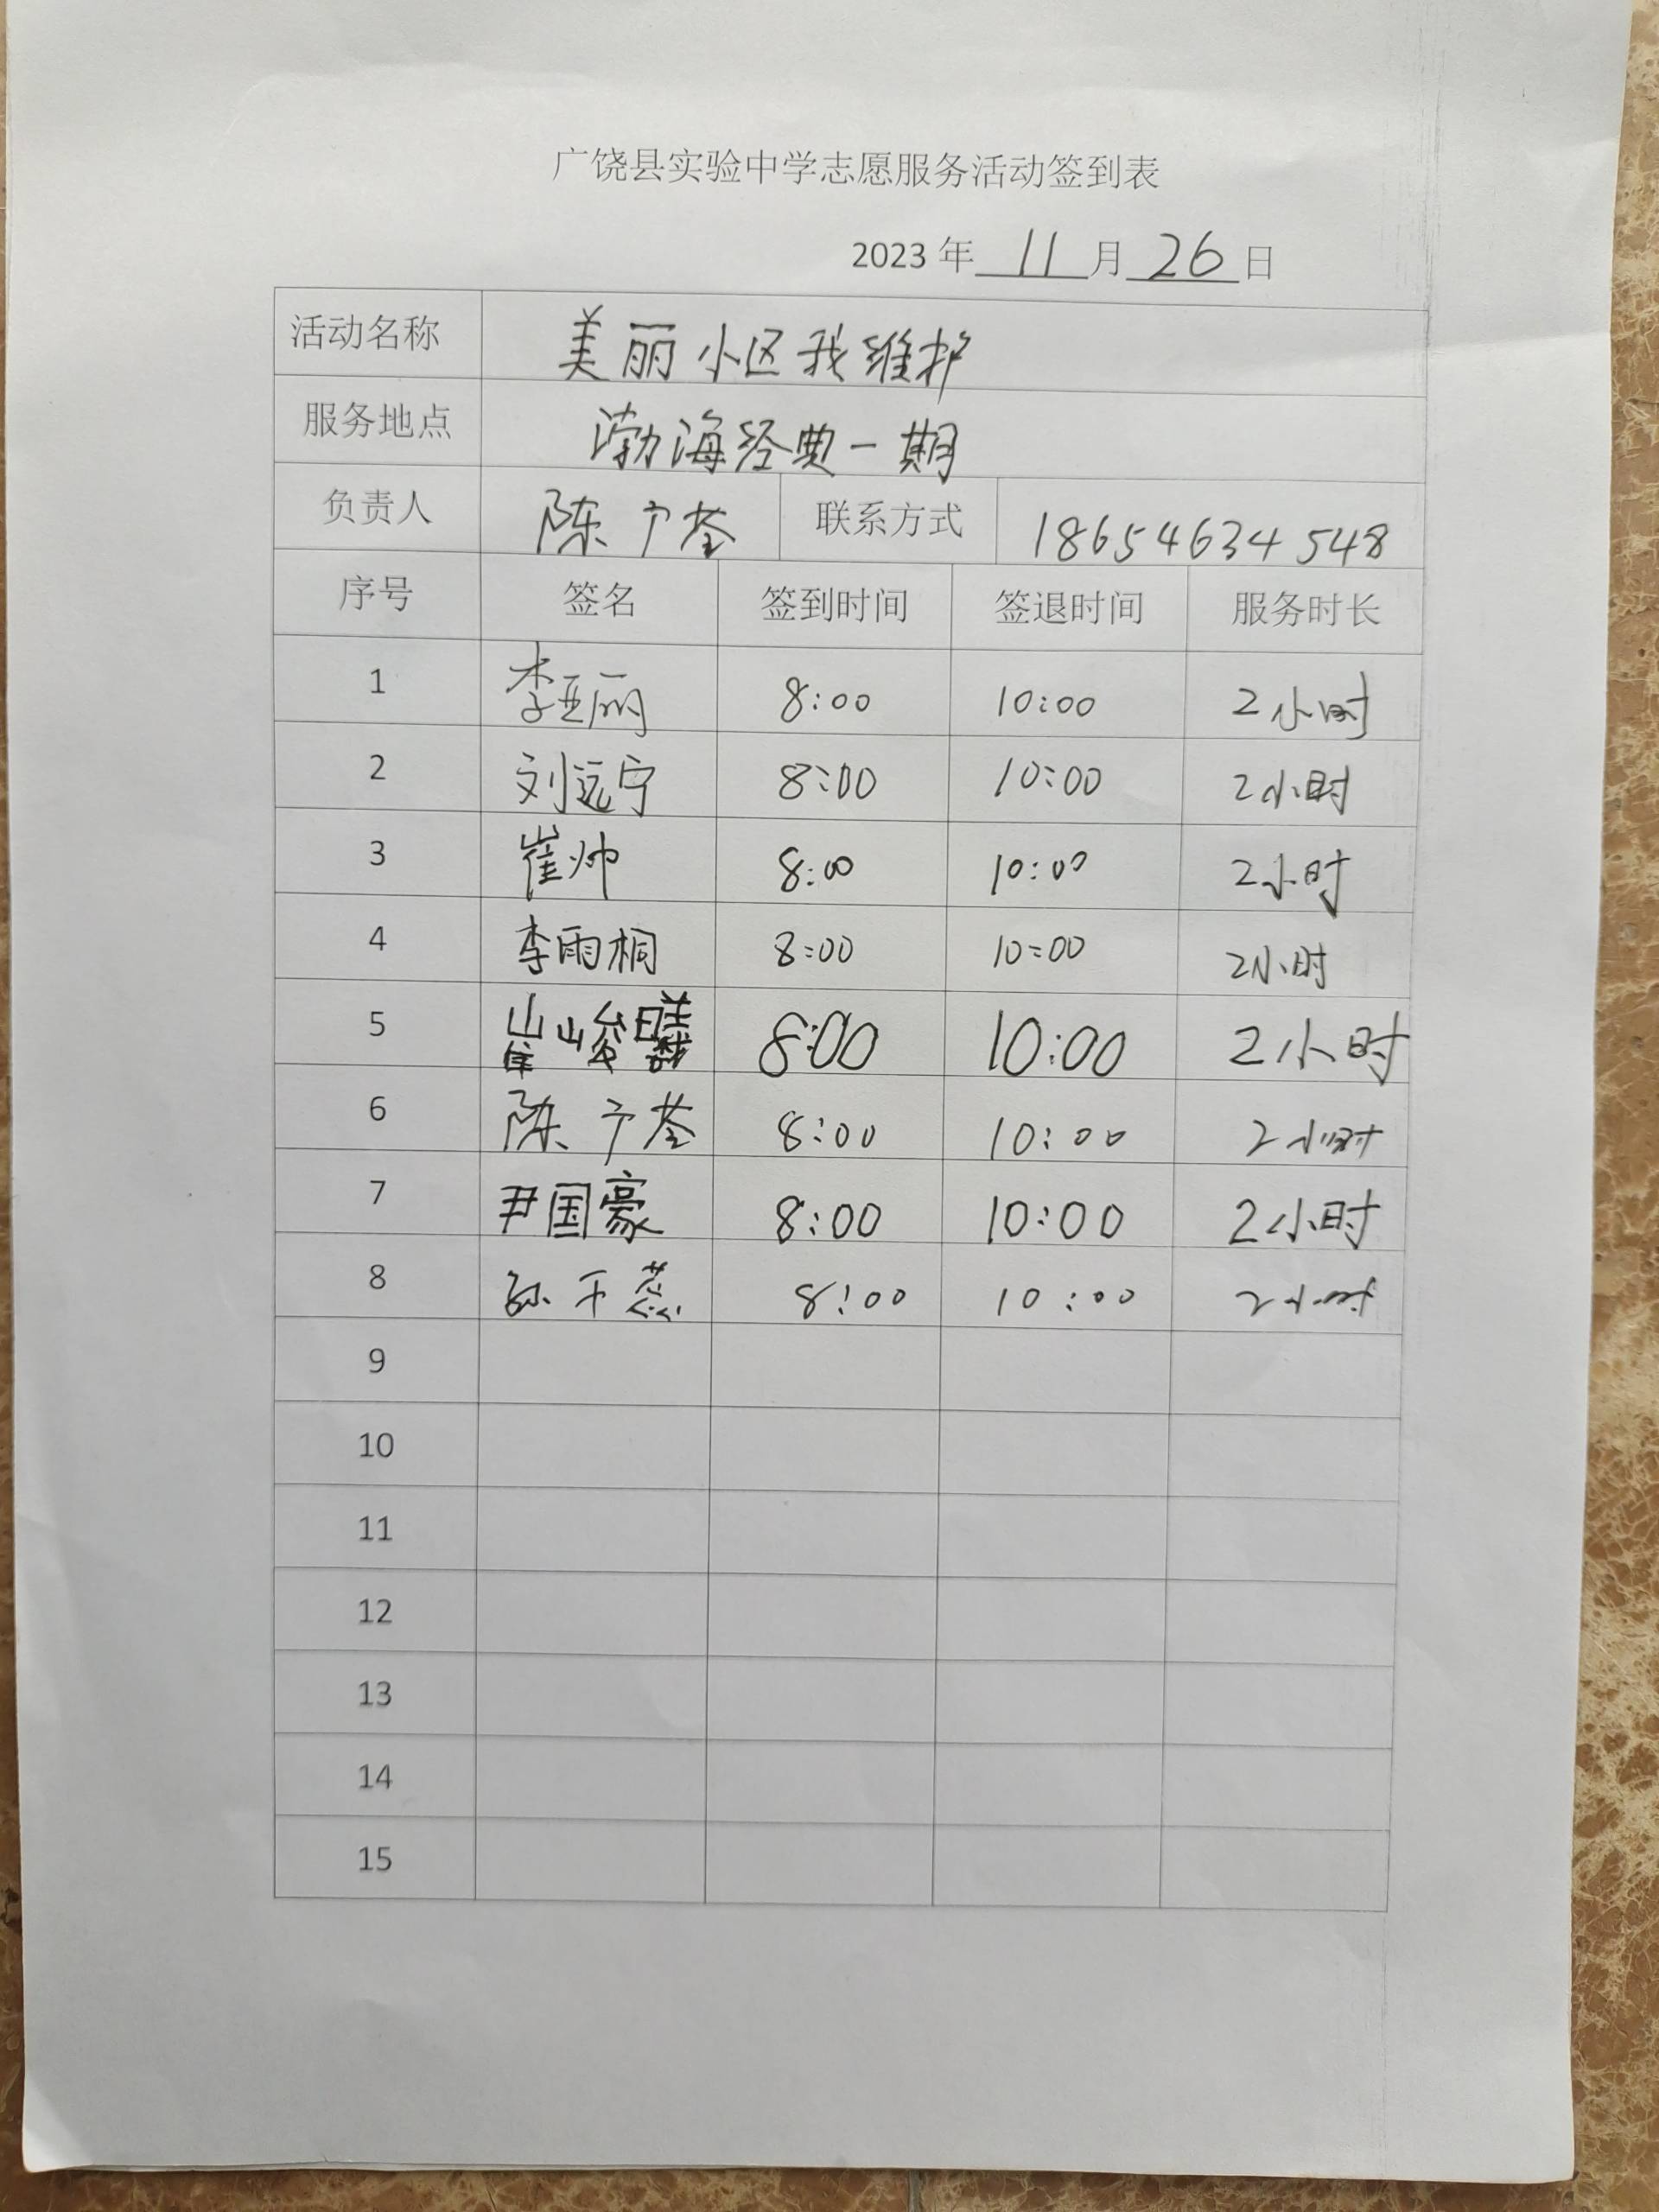 广饶县实验中学志愿服务活动签到表
2023 年 11 月 26 日
活动名称 美丽小区我维护
服务地点 渤海经典一期
负责人 陈 荃 联系方式 18654634548
序号 签名 签到时间 签退时间 服务时长
1 李亚丽 8:00 10:00 2小时
2 刘远宁 8:00 10:00 2小时
3 崔帅 8:00 10:00 2小时
4 李雨桐 8:00 10:00 2小时
5 崔峻曦 8:00 10:00 2小时
6 陈 荃 8:00 10:00 2小时
7 尹国豪 8:00 10:00 2小时
8 孙千蕊 8:00 10:00 2小时
9
10
11
12
13
14
15